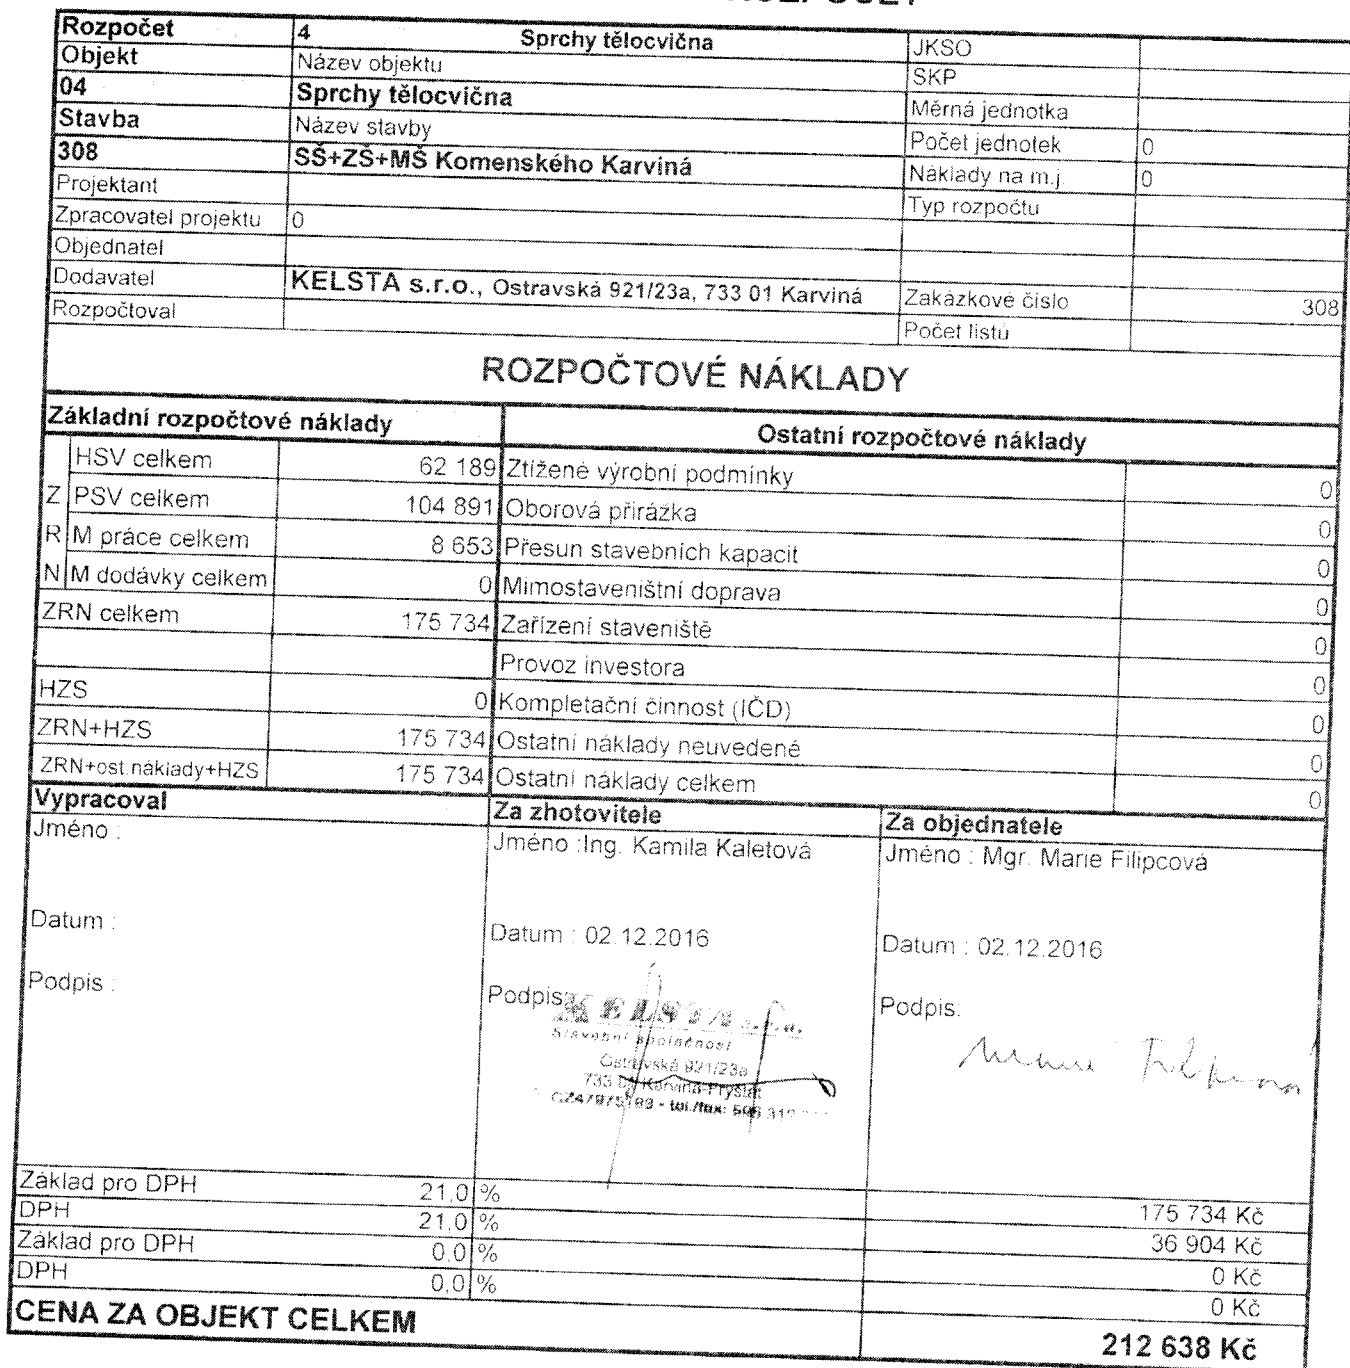 Rozpočet 4 Sprchy tělocvična JKSO
Objekt Název objektu SKP
04 Sprchy tělocvična Měrná jednotka
Stavba Název stavby Počet jednotek 0
308 SŠ+ZŠ+MŠ Komenského Karviná Náklady na m.j 0
Projektant Typ rozpočtu
Zpracovatel projektu 0
Objednatel
Dodavatel KELSTA s.r.o., Ostravská 921/23a, 733 01 Karviná Zakázkové číslo 308
Rozpočtoval Počet listů
ROZPOČTOVÉ NÁKLADY
Základní rozpočtové náklady Ostatní rozpočtové náklady
HSV celkem 62 189 Ztížené výrobní podmínky 0
Z PSV celkem 104 891 Oborová přirážka 0
R M práce celkem 8 653 Přesun stavebních kapacit 0
N M dodávky celkem 0 Mimostaveništní doprava 0
ZRN celkem 175 734 Zařízení staveniště 0
Provoz investora 0
HZS 0 Kompletační činnost (IČD) 0
ZRN+HZS 175 734 Ostatní náklady neuvedené 0
ZRN+ost.náklady+HZS 175 734 Ostatní náklady celkem 0
Vypracoval Za zhotovitele Za objednatele
Jméno : Jméno :Ing. Kamila Kaletová Jméno : Mgr. Marie Filipcová
Datum : Datum : 02.12.2016 Datum : 02.12.2016
Podpis : Podpis: Podpis:
KELSTA s.r.o.
Stavební společnost
Ostravská 921/23a
733 01 Karviná-Fryštát
tel./fax:
Základ pro DPH 21,0 % 175 734 Kč
DPH 21,0 % 36 904 Kč
Základ pro DPH 0,0 % 0 Kč
DPH 0,0 % 0 Kč
CENA ZA OBJEKT CELKEM 212 638 Kč